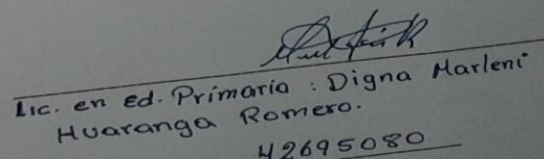 Lic. en Ed. Primaria : Digna Marleni
Huaranga Romero.
42695080